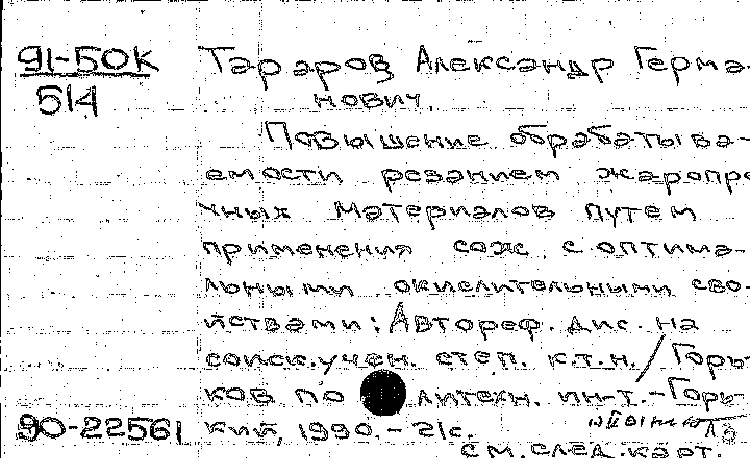 91-50К Тараров Александр Герма-
514 нович.
Повышение обрабатыва-
емости резанием жаропро
чных материалов путем
применения сож с оптима-
льными окислительными сво-
йствами: Автореф. дис. на
соиск. учен. степ. к.т.н. / Горь-
ков по литехн. ин-т. - Горь-
90-22561 кий, 1990. - 21с.
см. след. карт.